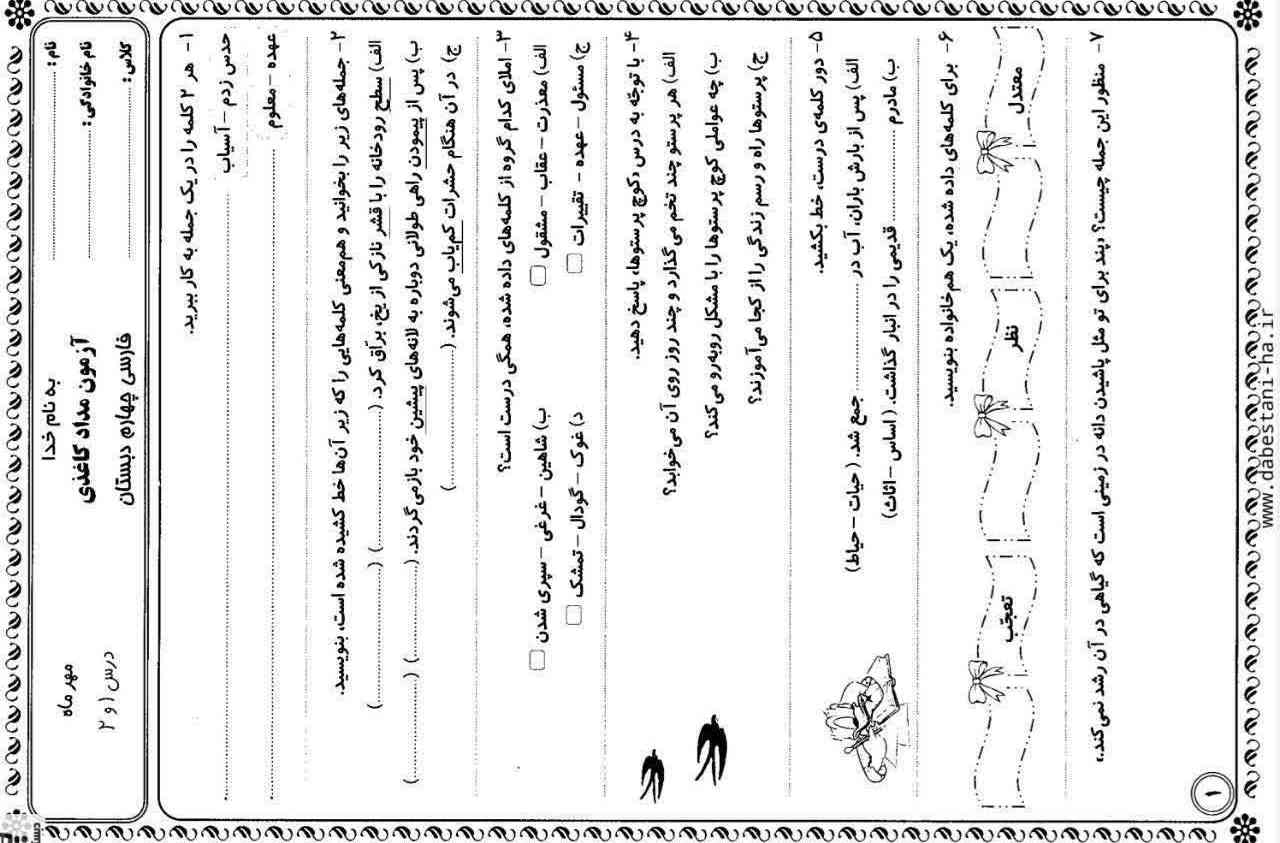 به نام خدا
آزمون مداد کاغذی
فارسی چهارم دبستان
نام : ....................
نام خانوادگی : ....................
کلاس : ....................
مهر ماه
درس ۱ و ۲
۱- هر ۲ کلمه را در یک جمله به کار ببرید.
حدس زدم - آسیاب ....................
عهده - معلوم ....................
۲- جمله‌های زیر را بخوانید و هم‌معنی کلمه‌هایی را که زیر آن‌ها خط کشیده شده است، بنویسید.
الف) سطح رودخانه را با قشر نازکی از یخ، برّاق کرد. (....................) (....................)
ب) پس از پیمودن راهی طولانی دوباره به لانه‌های پیشین خود بازمی‌گردند. (....................) (....................)
ج) در آن هنگام حشرات کم‌یاب می‌شوند. (....................)
۳- املای کدام گروه از کلمه‌های داده شده، همگی درست است؟
الف) معذرت - عقاب - مشقول □
ب) شاهین - غرغی - سپری شدن □
ج) مسئول - عهده - تقییرات □
د) غوک - گودال - تمشک □
۴- با توجّه به درس «کوچ پرستوها» پاسخ دهید.
الف) هر پرستو چند تخم می‌گذارد و چند روز روی آن می‌خوابد؟
ب) چه عواملی کوچ پرستوها را با مشکل روبه‌رو می‌کند؟
ج) پرستوها راه و رسم زندگی را از کجا می‌آموزند؟
۵- دور کلمه‌ی درست، خط بکشید.
الف) پس از بارش باران، آب در .................... جمع شد. (حیات - حیاط)
ب) مادرم .................... قدیمی را در انبار گذاشت. (اساس - اثاث)
۶- برای کلمه‌های داده شده، یک هم‌خانواده بنویسید.
معتدل
نظر
تعجّب
۷- منظور این جمله چیست؟ «پند برای تو مثل پاشیدن دانه در زمینی است که گیاهی در آن رشد نمی‌کند.»
۱
www.dabestani-ha.ir